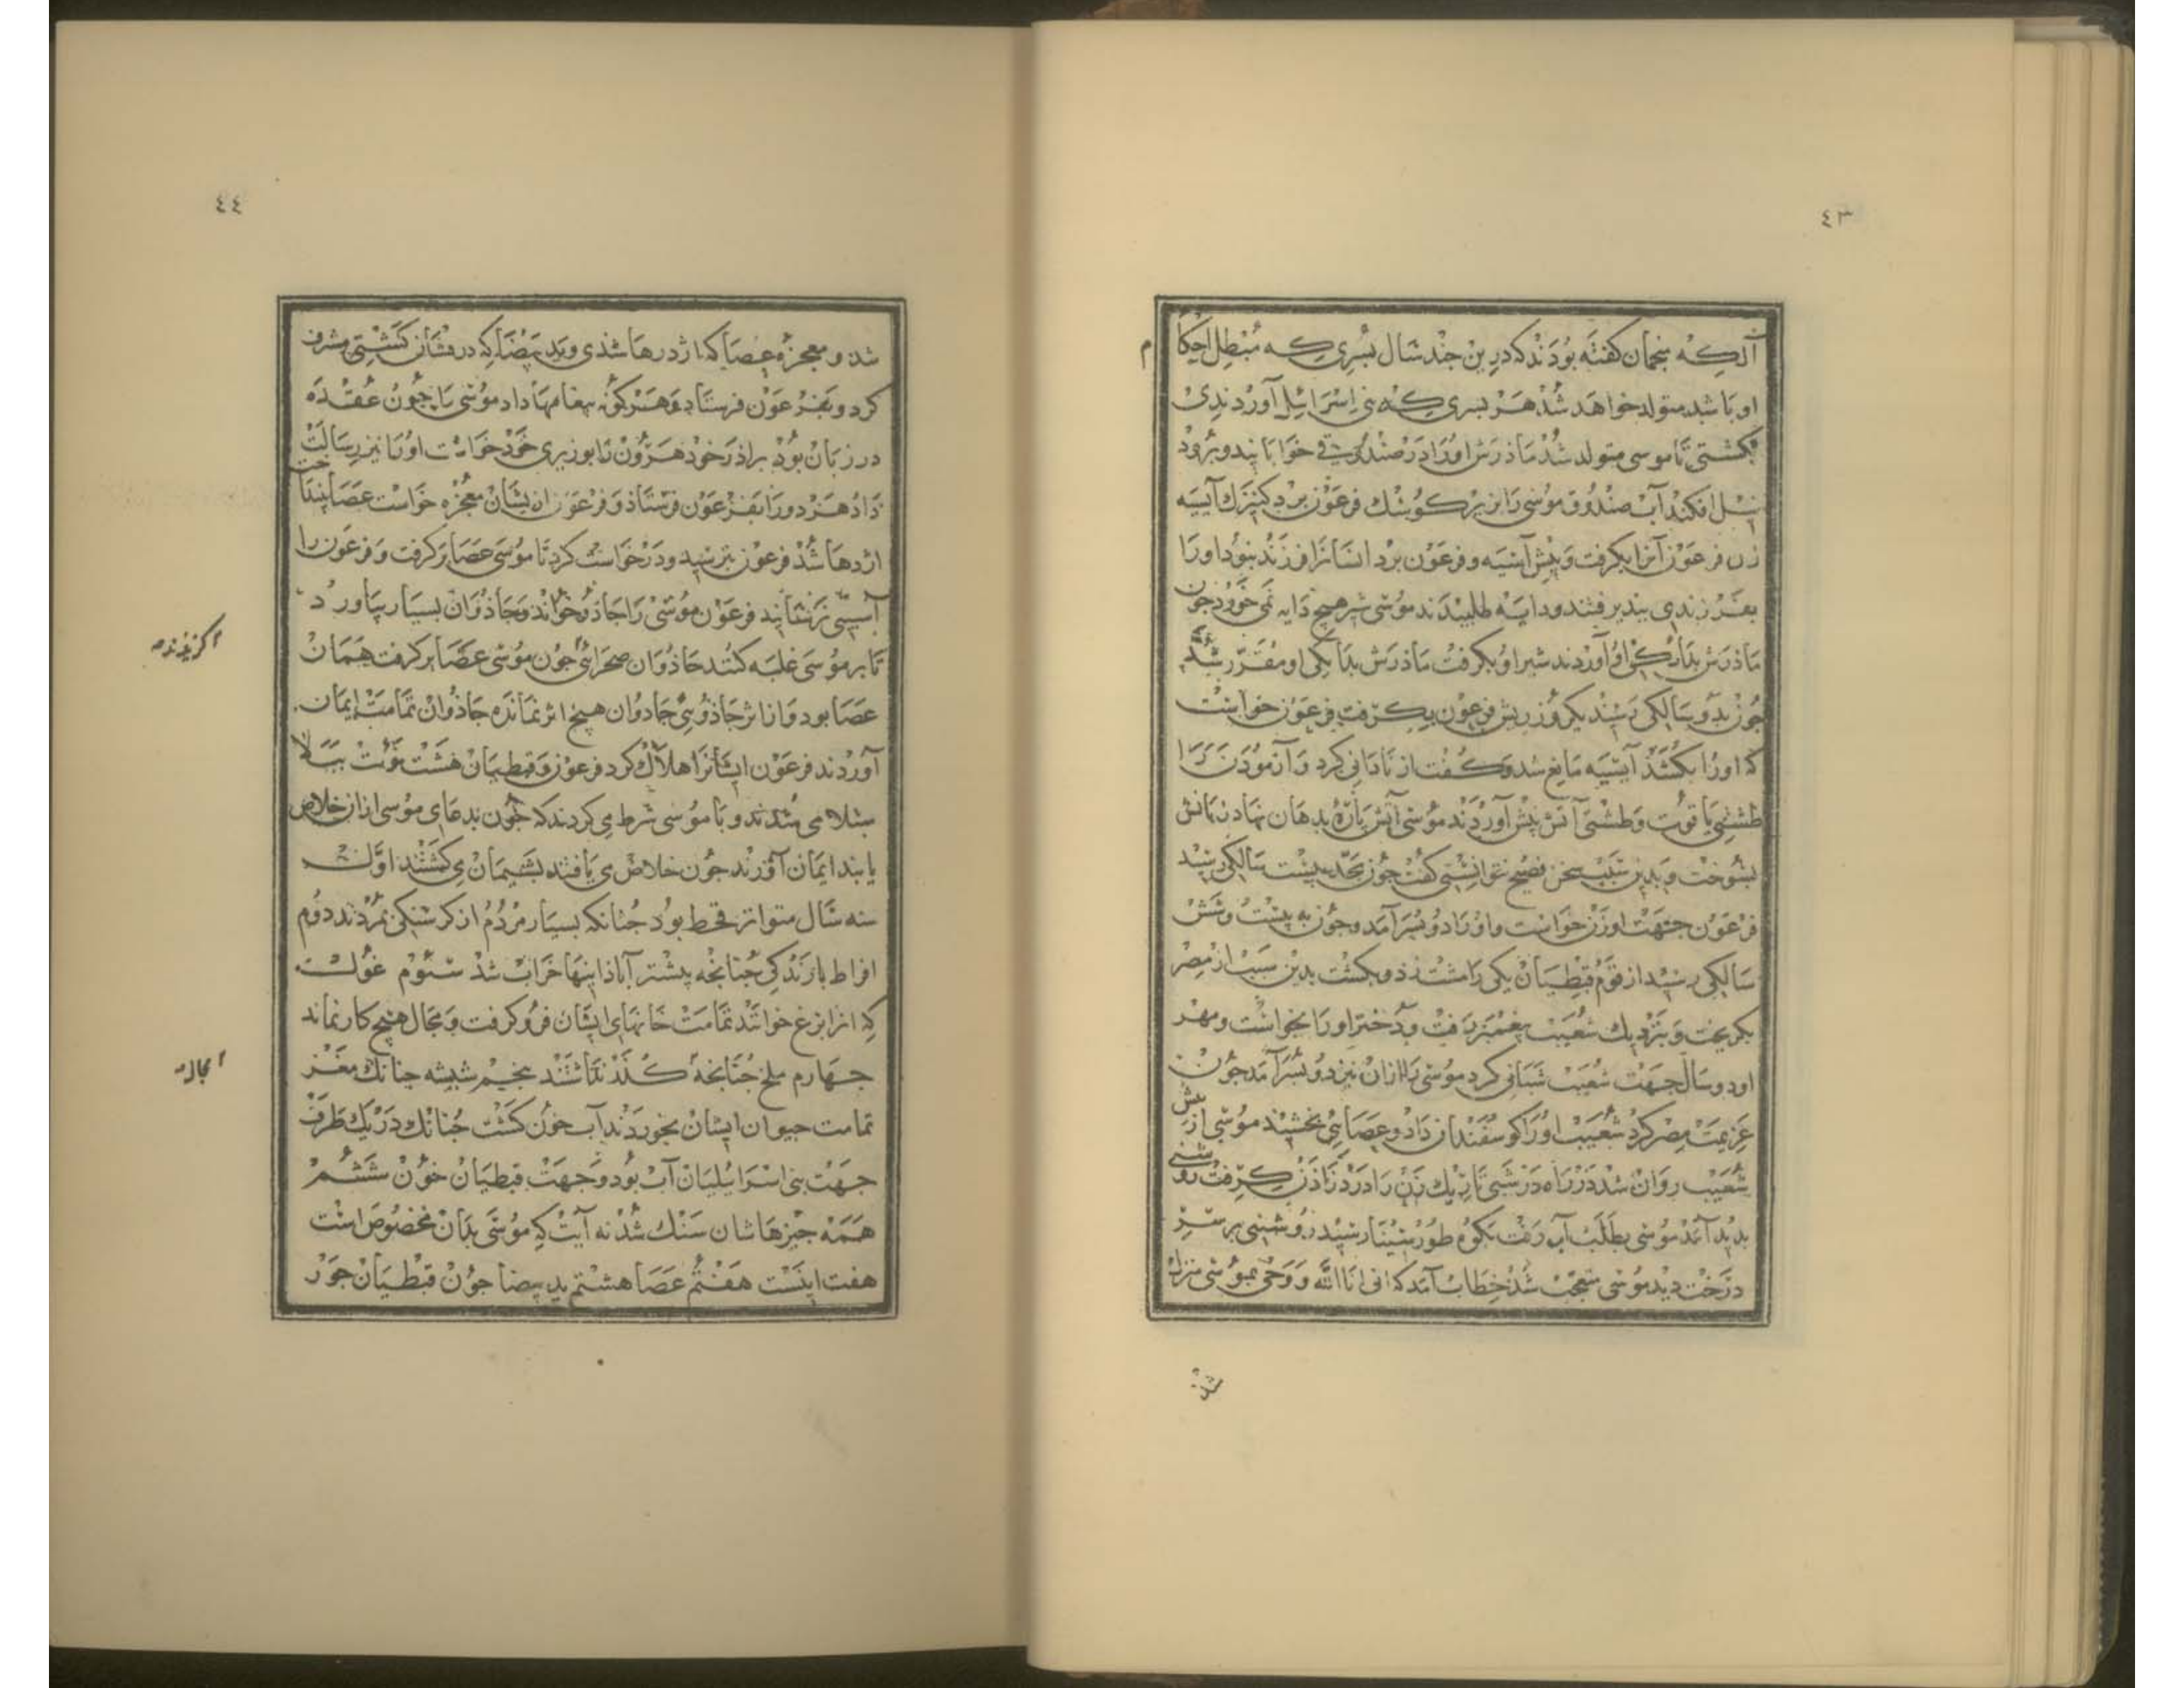 ٤٣
آنکه منجمان کفته بودند که درین جند سال بسری که مبطل احکام
او باشد متولد خواهد شد هر بسری که بنی اسرائیل آوردندی
بکشتی تا موسی متولد شد ماذرش اورا در صندوقی خوابانید و برود
نیل افکند آب صندوق موسی را بزیر کوشک فرعون برد کنیزک آسیه
زن فرعون آنرا بکرفت و پیش آسیه و فرعون برد ایشانرا فرزند نبوذ اورا
بفرزندی بپذیرفتند و دایه طلبیدند موسی شیر هیچ دایه نمی خورد جون
ماذرش بدایکی او آوردند شیر او بکرفت ماذرش بدایکی او مقرر شد
جون بدو سالکی رسید یکروز ریش فرعون بکرفت فرعون خواست
که اورا بکشذ آسیه مانع شد و کفت از نادانی کرد و آزمودن را
طشتی یاقوت و طشتی آتش پیش آوردند موسی آتش باره بدهان نهاد زبانش
بسوخت و بدین سبب سخن فصیح نتوانستی کفت جون بحد بیست سالکی رسید
فرعون جهت او زن خواست و اورا دو بسر آمد و جون به بیست و شش
سالکی رسید از قوم قبطیان یکی را مشت زذ و بکشت بدین سبب از مصر
بکریخت و بنزدیک شعیب پیغمبر رفت و دختر اورا بخواست و مهر
او دو سال جهت شعیب شبانی کرد موسی را ازان نیز دو بسر آمد جون
عزیمت مصر کرد شعیب اورا کوسفندان داد و عصایی بخشید موسی از پیش
شعیب روان شد در راه در شبی تاریک زن را درد زاذن کرفت روشنی
بدید آمد موسی بطلب آب رفت بکوه طور سینا رسید روشنی بر سر
درخت دید موسی متعجب شد خطاب آمد که انی انا الله و وحی بموسی منزل
شد
٤٤
شد و معجزه عصا که اژدرها شذی و ید بیضا که درفشان کشتی مشرف
کرد و بفرعون فرستاد و هر کونه بیغامها داد موسی را جون عقده
در زبان بود براذر خوذ هرون را بوزیری خوذ خواست اورا نیز رسالت
داد هردو را بفرعون فرستاذ و فرعون ازیشان معجزه خواست عصا بینداخت
اژدها شد فرعون بترسید و درخواست کرد تا موسی عصا بر کرفت و فرعون را
آسیبی نرسانید فرعون موسی را جاذو خواند و جاذوان بسیار بیاورد
تا بر موسی غلبه کنند جاذوان صحرائی جون موسی عصا بر کرفت همان
اکزیدند
عصا بود و از اثر جاذویی جادوان هیچ اثر نمانده جاذوان تمامت ایمان
آوردند فرعون ایشانرا هلاک کرد فرعون و قبطیان هشت نوبت ببلا
مبتلا می شدند و با موسی شرط می کردند که جون بدعای موسی ازان خلاص
یابند ایمان آورند جون خلاص می یافتند بشیمان می کشتند اول
سه سال متواتر قحط بود جنانکه بسیار مردم از کرسنکی بمردند دوم
افراط بارندکی جنانجه بیشتر آباذانیها خراب شذ سئوم غوک
که انرا بزغ خوانند تمامت خانهای ایشان فرو کرفت و مجال هیچ کار نماند
جهارم ملخ جنانجه کند نتاشند بنجم شیشه جنانک مغز
تمامت حیوان ایشان بخوردند آب خون کشت جنانک در یک طرف
جهت بنی اسرائیلیان آب بود و جهت قبطیان خون ششم
همه جیزهاشان سنک شد نه آیت که موسی بدان مخصوص است
هفت اینست هفتم عصا هشتم ید بیضا جون قبطیان جور